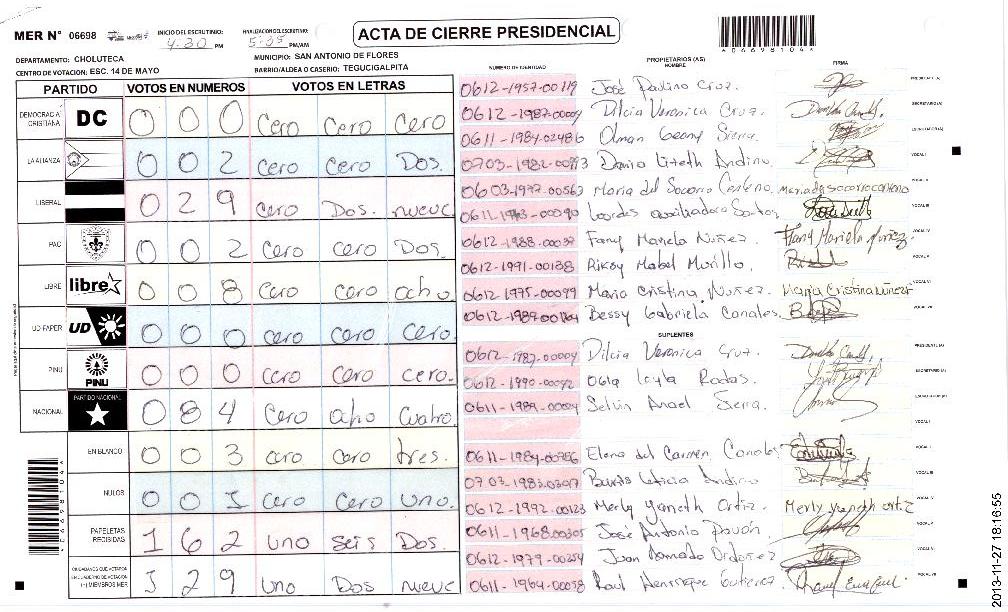 MER N° 06698
INICIO DEL ESCRUTINIO: 4:30 PM
FINALIZACION DEL ESCRUTINIO: 5:35 PM/AM
ACTA DE CIERRE PRESIDENCIAL
*06698104*
DEPARTAMENTO: CHOLUTECA
MUNICIPIO: SAN ANTONIO DE FLORES
CENTRO DE VOTACION: ESC. 14 DE MAYO
BARRIO/ALDEA O CASERIO: TEGUCIGALPITA
PARTIDO VOTOS EN NUMEROS VOTOS EN LETRAS
DEMOCRACIA CRISTIANA DC 0 0 0 cero cero cero
LA ALIANZA 0 0 2 cero cero Dos.
LIBERAL 0 2 9 cero Dos. nueve
PAC 0 0 2 cero cero Dos.
LIBRE libre 0 0 8 cero cero ocho.
UD-FAPER UD 0 0 0 cero cero cero.
PINU PINU 0 0 0 cero cero cero.
NACIONAL PARTIDO NACIONAL 0 8 4 cero ocho cuatro.
EN BLANCO 0 0 3 cero cero tres.
NULOS 0 0 1 cero cero uno.
PAPELETAS RECIBIDAS 1 6 2 uno seis Dos.
CIUDADANOS QUE VOTARON EN CUADERNO DE VOTACION (+) MIEMBROS MER 1 2 9 uno Dos nueve
NUMERO DE IDENTIDAD PROPIETARIOS (AS) NOMBRE FIRMA
0612-1957-00119 José Paulino Cruz. PRESIDENTE (A)
0612-1987-00009 Dilcia Veronica Cruz. SECRETARIO (A)
0611-1984-02486 Olman Geony Sierra ESCRUTADOR (A)
Dania Lizeth Andino. VOCAL I
0603-1977-00563 Maria del Socorro Centeno. maria del socorro centeno VOCAL II
Lourdes auxiliadora Santos VOCAL III
Fany Mariela Nuñez. Fany Mariela Nuñez. VOCAL IV
0612-1991-00138 Riksy Mabel Murillo. VOCAL V
0612-1975-00099 Maria Cristina Nuñez. Maria Cristina Nuñez VOCAL VI
Bessy Gabriela Canales. VOCAL VII
SUPLENTES
0612-1987-00009 Dilcia Veronica Cruz. PRESIDENTE (A)
Leyla Rodas. SECRETARIO (A)
Selvin Anael Sierra. ESCRUTADOR (A)
VOCAL I
Elena del Carmen Canales VOCAL II
Leticia Andino VOCAL III
0612-1992-00123 Merly Yaneth Ortiz. Merly yaneth ortiz VOCAL IV
0611-1968-00305 José Antonio Pavón. VOCAL V
0612-1979-00254 Juan Armado Ordoñez VOCAL VI
0611-1964-00058 Raul Henrrique Gutierrez. VOCAL VII
*06698104*
2013-11-27 18:16:55